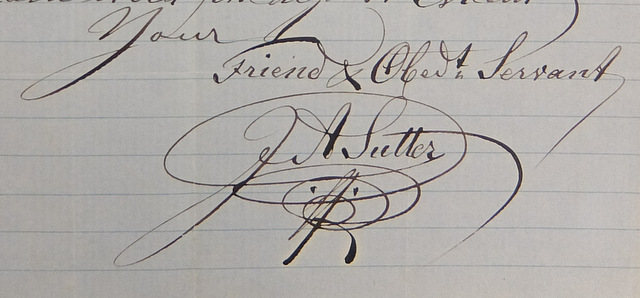 Your
Friend & Obedt. Servant
J A Sutter